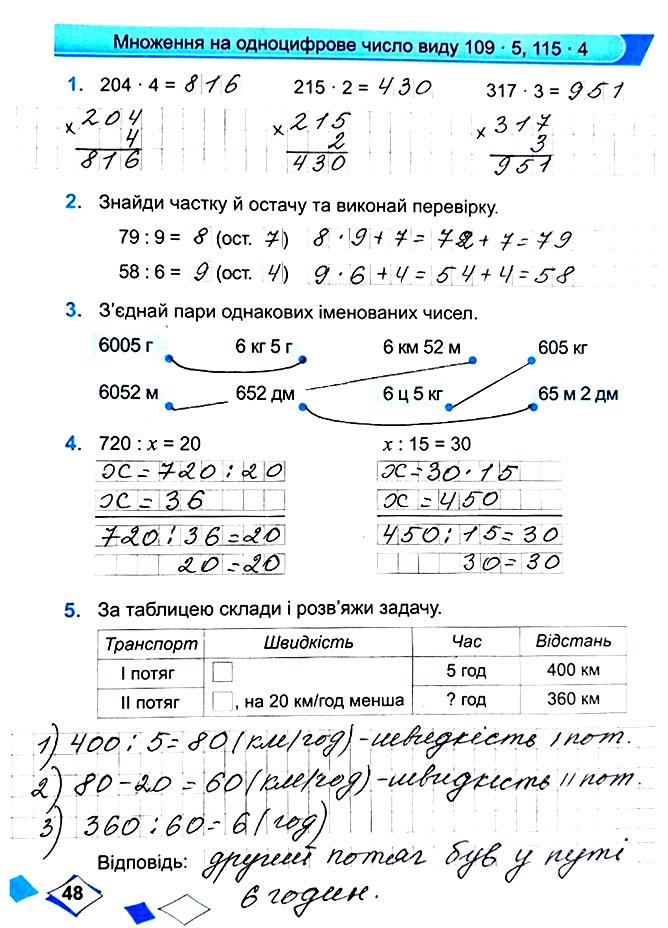 Множення на одноцифрове число виду 109 · 5, 115 · 4
1. 204 · 4 = 816 215 · 2 = 430 317 · 3 = 951
× 204 × 215 × 317
4 2 3
816 430 951
2. Знайди частку й остачу та виконай перевірку.
79 : 9 = 8 (ост. 7) 8 · 9 + 7 = 72 + 7 = 79
58 : 6 = 9 (ост. 4) 9 · 6 + 4 = 54 + 4 = 58
3. З'єднай пари однакових іменованих чисел.
6005 г 6 кг 5 г 6 км 52 м 605 кг
6052 м 652 дм 6 ц 5 кг 65 м 2 дм
4. 720 : x = 20 x : 15 = 30
x = 720 : 20 x = 30 · 15
x = 36 x = 450
720 : 36 = 20 450 : 15 = 30
20 = 20 30 = 30
5. За таблицею склади і розв'яжи задачу.
Транспорт Швидкість Час Відстань
І потяг 5 год 400 км
ІІ потяг , на 20 км/год менша ? год 360 км
1) 400 : 5 = 80 (км/год) - швидкість І пот.
2) 80 - 20 = 60 (км/год) - швидкість ІІ пот.
3) 360 : 60 = 6 (год)
Відповідь: другий потяг був у путі
6 годин.
48